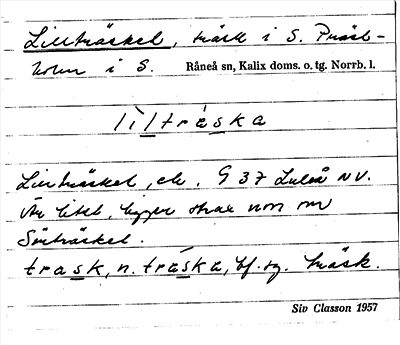 Lillträsket, träsk i S. Präst-
holm i S. Råneå sn, Kalix doms. o. tg. Norrb. l.
lìltráska
Lillträsket, ek. 9 37 Luleå NV.
Är litet, ligger strax norr om
Sörträsket.
trask, n. tráska, bf. sg. träsk.
Siv Classon 1957